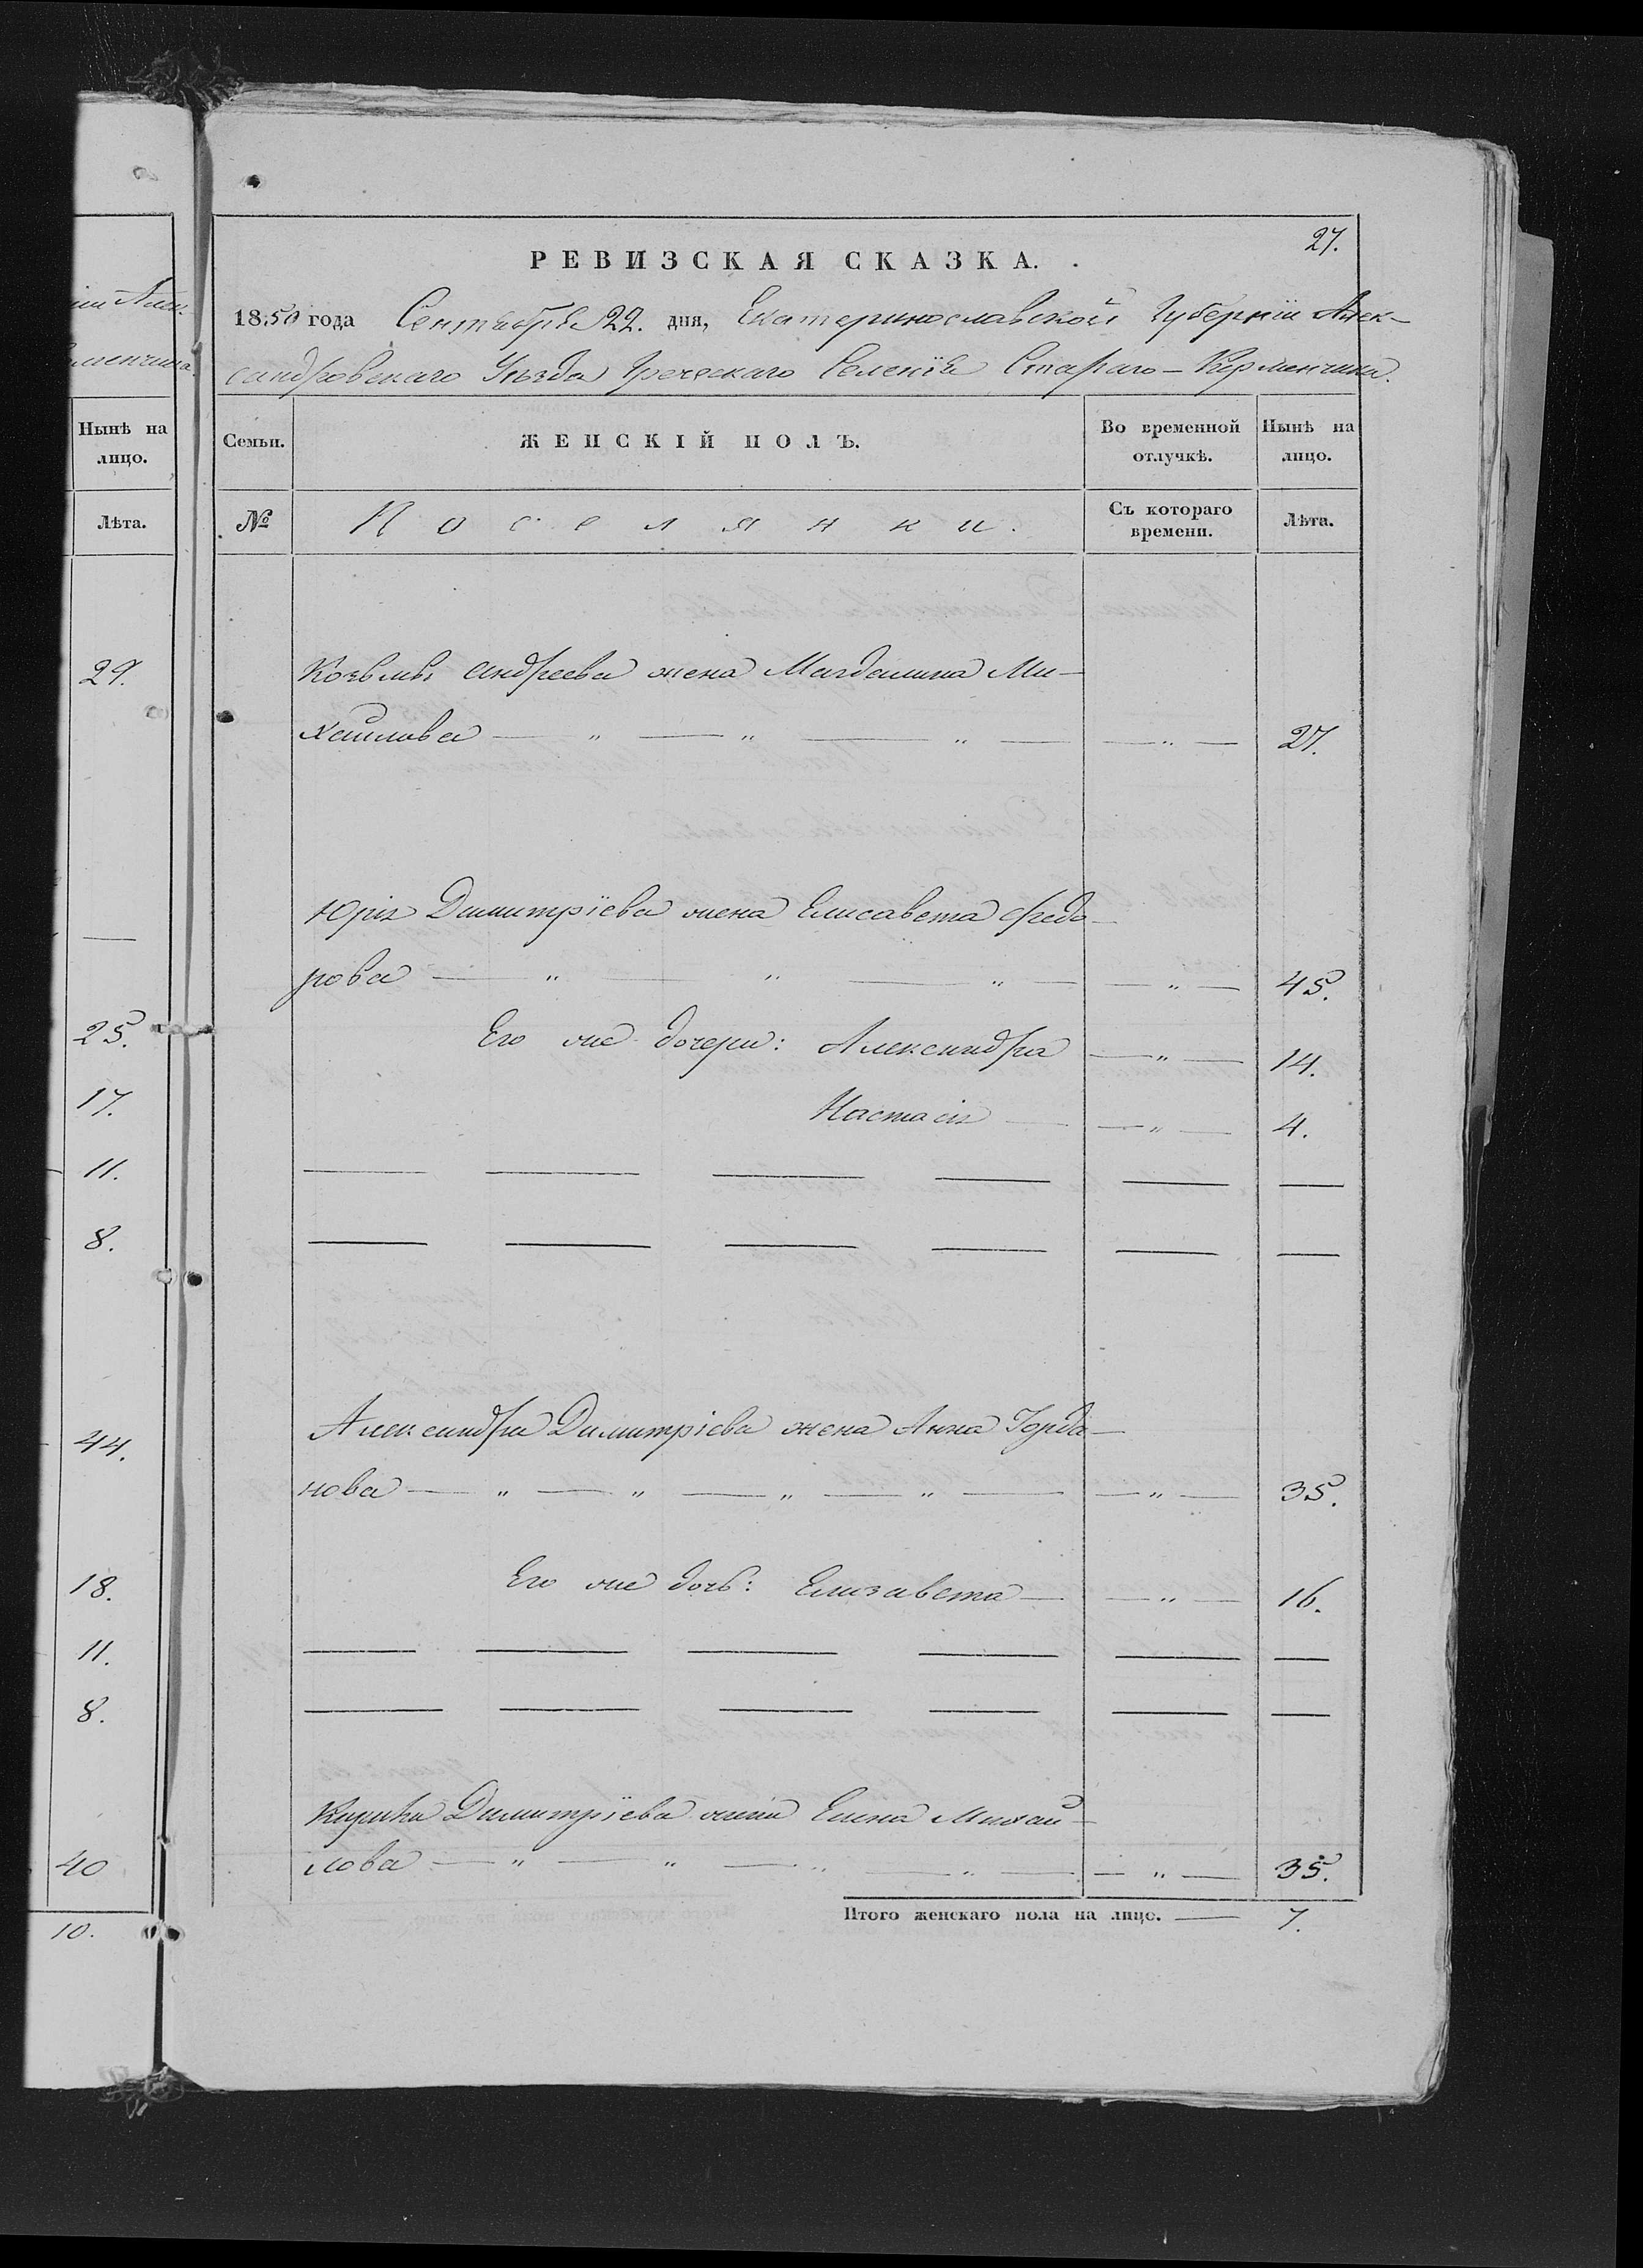 27.
РЕВИЗСКАЯ СКАЗКА.
1850 года Сентября 22. дня, Екатеринославской Губерніи Алек-
сандровскаго Уѣзда Греческаго Селенія Стараго-Керменчика.
Нынѣ на лицо.
Лѣта.
29.
—
25.
17.
11.
8.
44.
18.
11.
8.
40
10.
Семьи. ЖЕНСКІЙ ПОЛЪ. Во временной отлучкѣ. Нынѣ на лицо.
№ Поселянки. Съ котораго времени. Лѣта.
Козьмы Андреева жена Магдалина Ми-
хайлова — „ — „ — „ — — „ — 27.
Юрія Димитріева жена Елисавета Федо-
рова — „ — „ — „ — — „ — 45.
Его же дочери: Александра — „ — 14.
Настасія — — „ — 4.
— — — — — —
— — — — — —
Александра Димитріева жена Анна Іорда-
нова — „ — „ — „ — „ — — „ — 35.
Его же дочь: Елизавета — — „ — 16.
— — — — — —
— — — — — —
Димитріева жена Елена Михай-
лова — „ — „ — „ — „ — — „ — 35.
Итого женскаго пола на лицо. — 7.